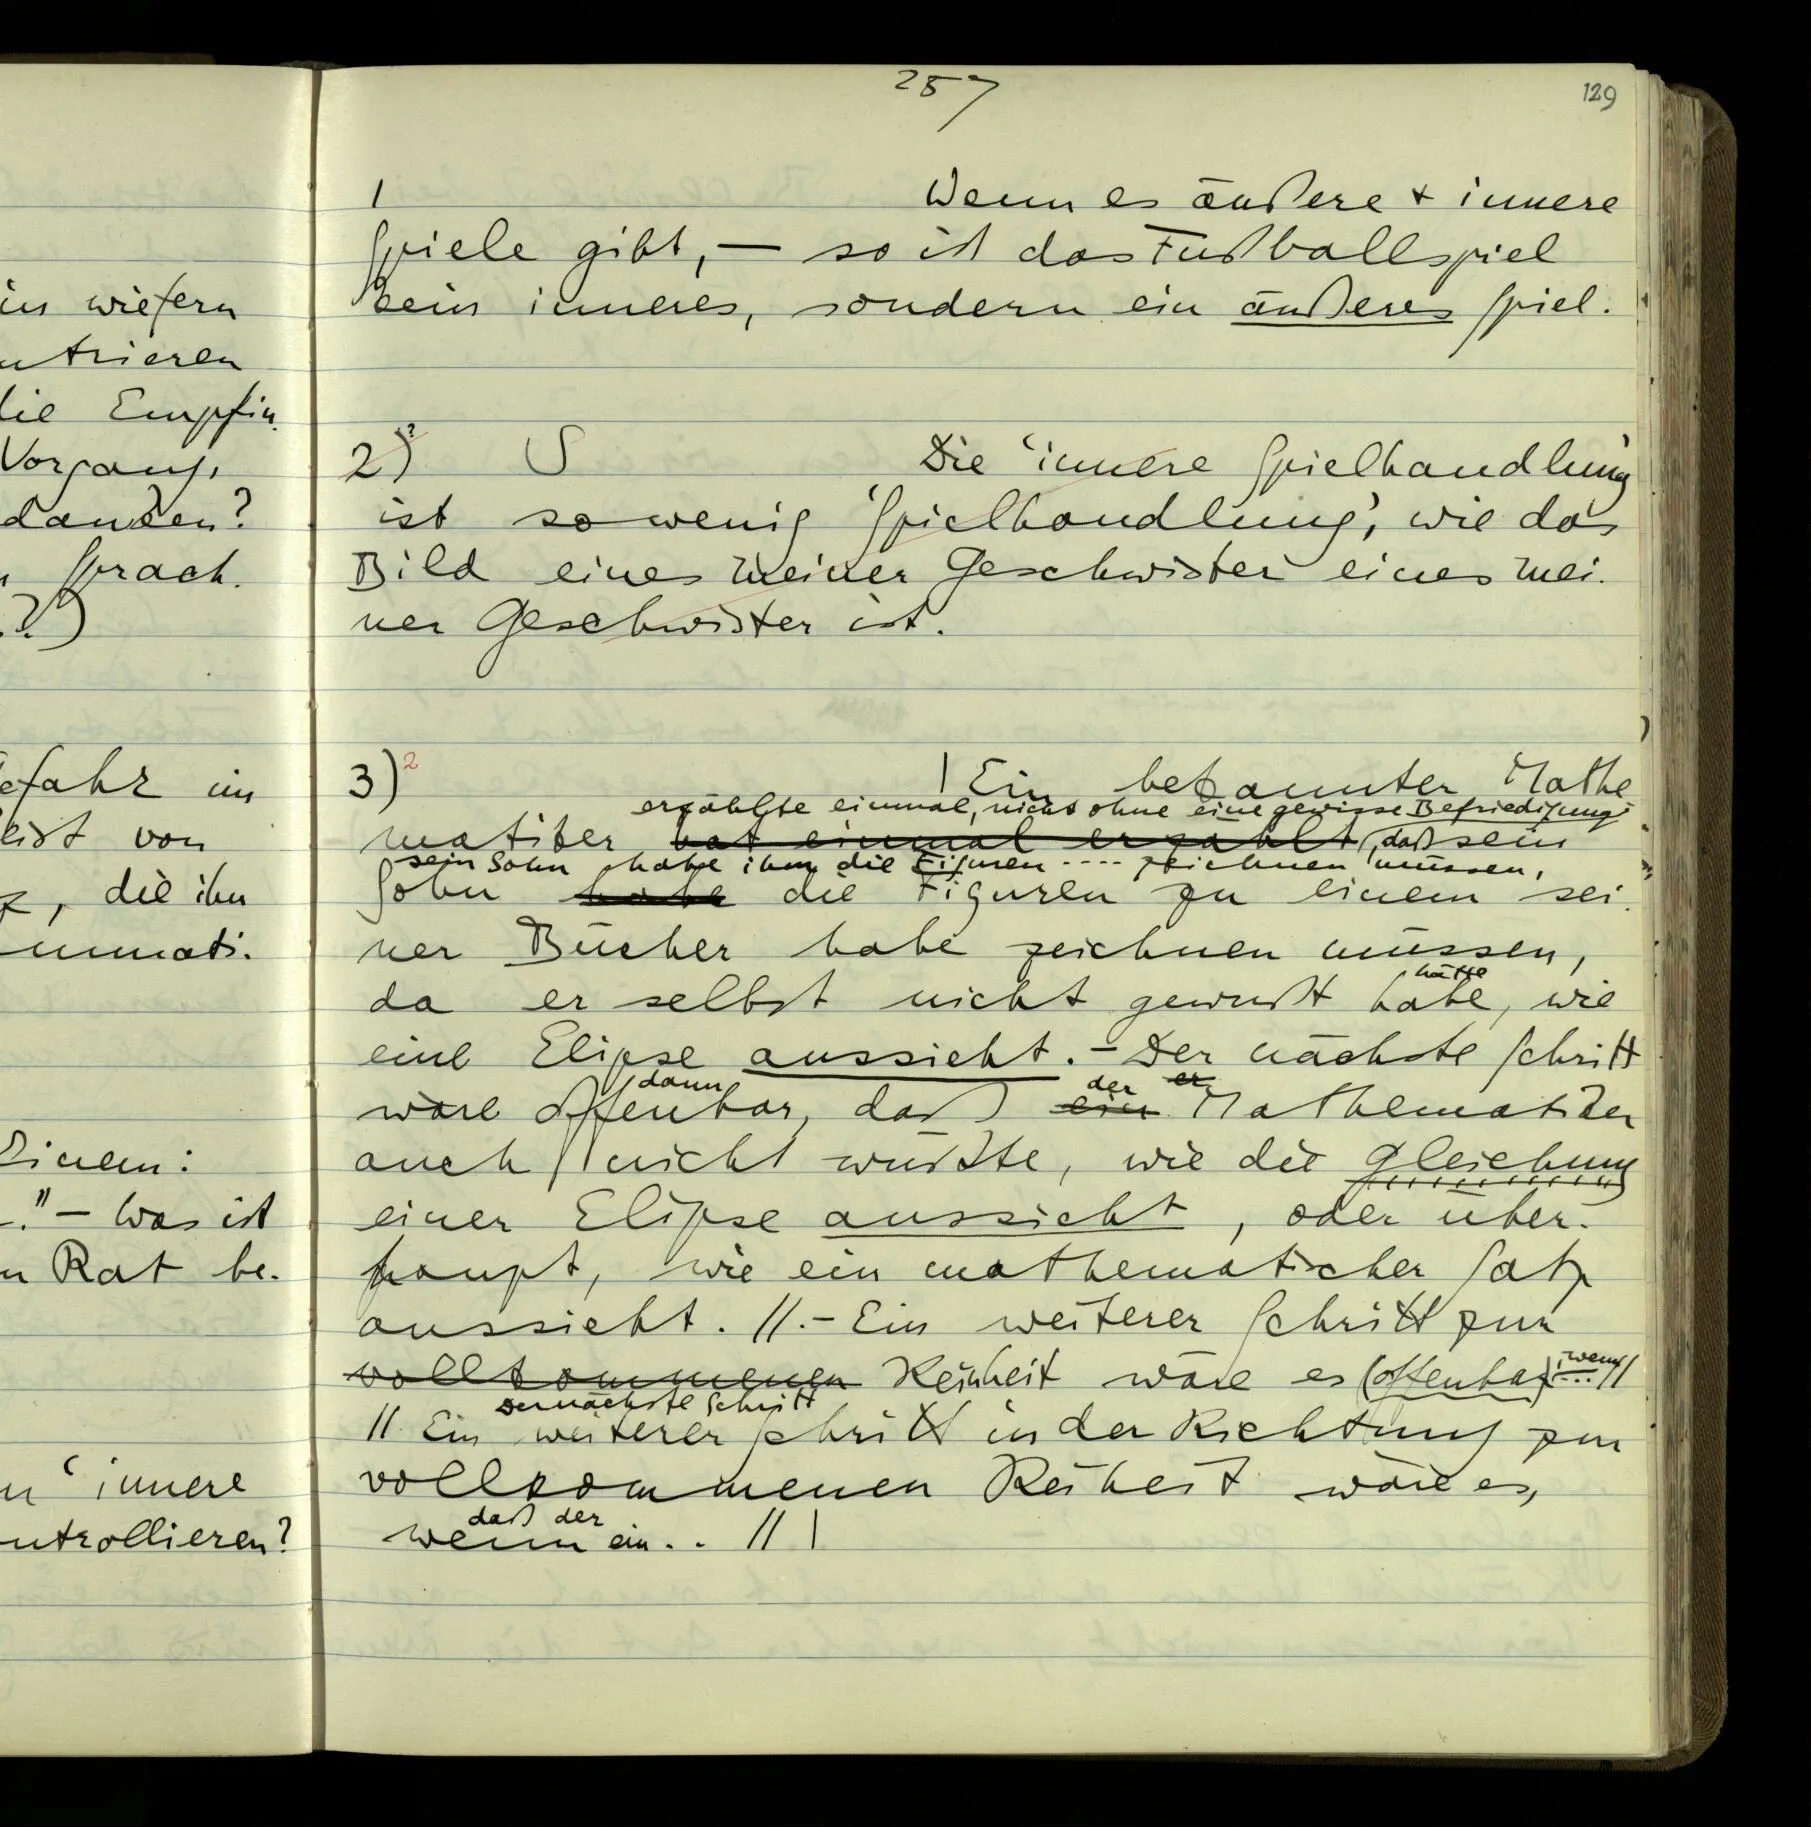 in wiefern
ntrieren
die Empfin-
Vorgang,
danken?
n Sprach-
..?)
efahr im
eist von
, die ihn
mmati-
Einem:
." – Was ist
n Rat be-
n ‘innere
ntrollieren?
257
129
| Wenn es äußere + innere
Spiele gibt, — so ist das Fußballspiel
kein inneres, sondern ein äußeres Spiel.
2)? S Die ‘innere Spielhandlung’
ist so wenig ‘Spielhandlung’, wie das
Bild eines meiner Geschwister eines mei-
ner Geschwister ist.
3) 2 | Ein bekannter Mathe
erzählte einmal, nicht ohne eine gewisse Befriedigung
matiker hat einmal erzählt, daß sein
sein Sohn habe ihm die Figuren .... zeichnen müssen,
Sohn habe die Figuren zu einem sei-
ner Bücher habe zeichnen müssen,
hätte
da er selbst nicht gewußt habe, wie
eine Elipse aussieht. – Der nächste Schritt
dann der er
wäre offenbar, daß ein Mathematiker
auch nicht wüßte, wie die Gleichung
einer Elipse aussieht, oder über-
haupt, wie ein mathematischer Satz
aussieht. //. – Ein weiterer Schritt zur
vollkommenen Reinheit wäre es (offenbar), wenn ... //
Der nächste Schritt
// Ein weiterer Schritt in der Richtung zur
vollkommenen Reiheit wäre es,
daß der
wenn ein .. // |